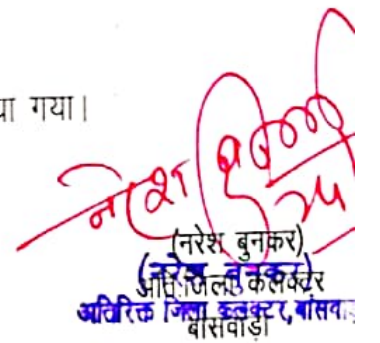 गया।
नरेश
(नरेश बुनकर)
(नरेश बुनकर)
अति. जिला कलेक्टर
अतिरिक्त जिला कलक्टर, बांसवा
बांसवाड़ा